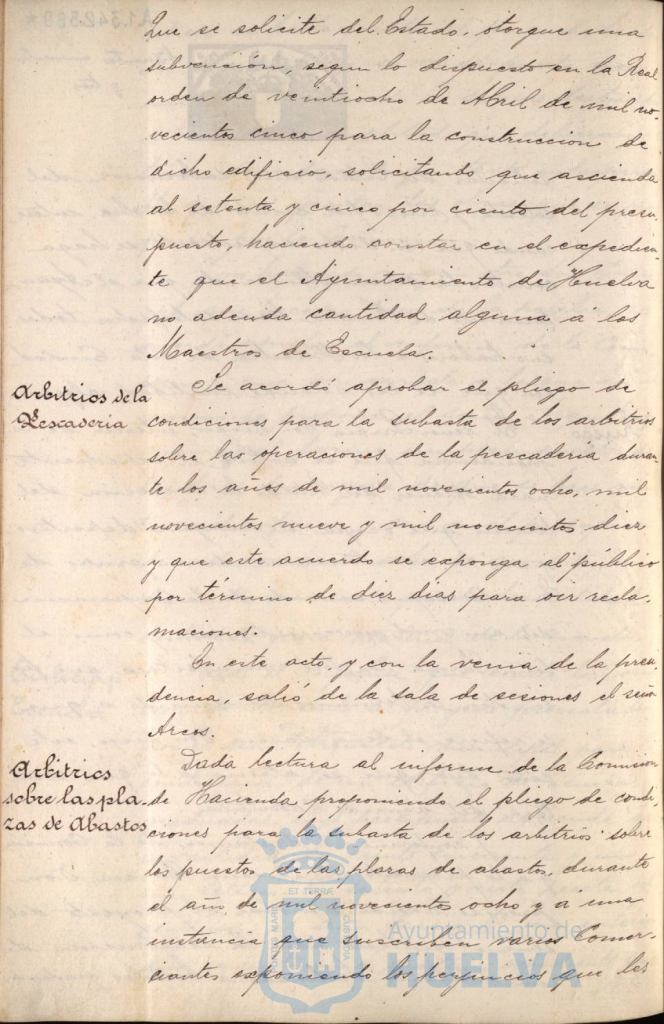 Que se solicite del Estado, otorgue una
subvención, segun lo dispuesto en la Real
orden de veintiocho de Abril de mil no-
vecientos cinco para la construccion de
dicho edificio, solicitando que ascienda
al setenta y cinco por ciento del presu-
puesto, haciendo constar en el expedien-
te que el Ayuntamiento de Huelva
no adeuda cantidad alguna á los
Maestros de Escuela.
Arbitrios de la
Pescaderia
Se acordó aprobar el pliego de
condiciones para la subasta de los arbitrios
sobre las operaciones de la pescadería duran-
te los años de mil novecientos ocho, mil
novecientos nueve y mil novecientos diez
y que este acuerdo se exponga al público
por término de diez dias para oir recla-
maciones.
En este acto, y con la venia de la presi-
dencia, salió de la sala de sesiones el señor
Arcos.
Arbitrios
sobre las pla-
zas de Abastos
Dada lectura al informe de la Comision
de Hacienda proponiendo el pliego de condi-
ciones para la subasta de los arbitrios sobre
los puestos de las plazas de abastos, durante
el año de mil novecientos ocho y á una
instancia que suscriben varios Comer-
ciantes exponiendo los perjuicios que les
ET TERRÆ
PORTUS MARIS
CUSTODIA
Ayuntamiento de
HUELVA